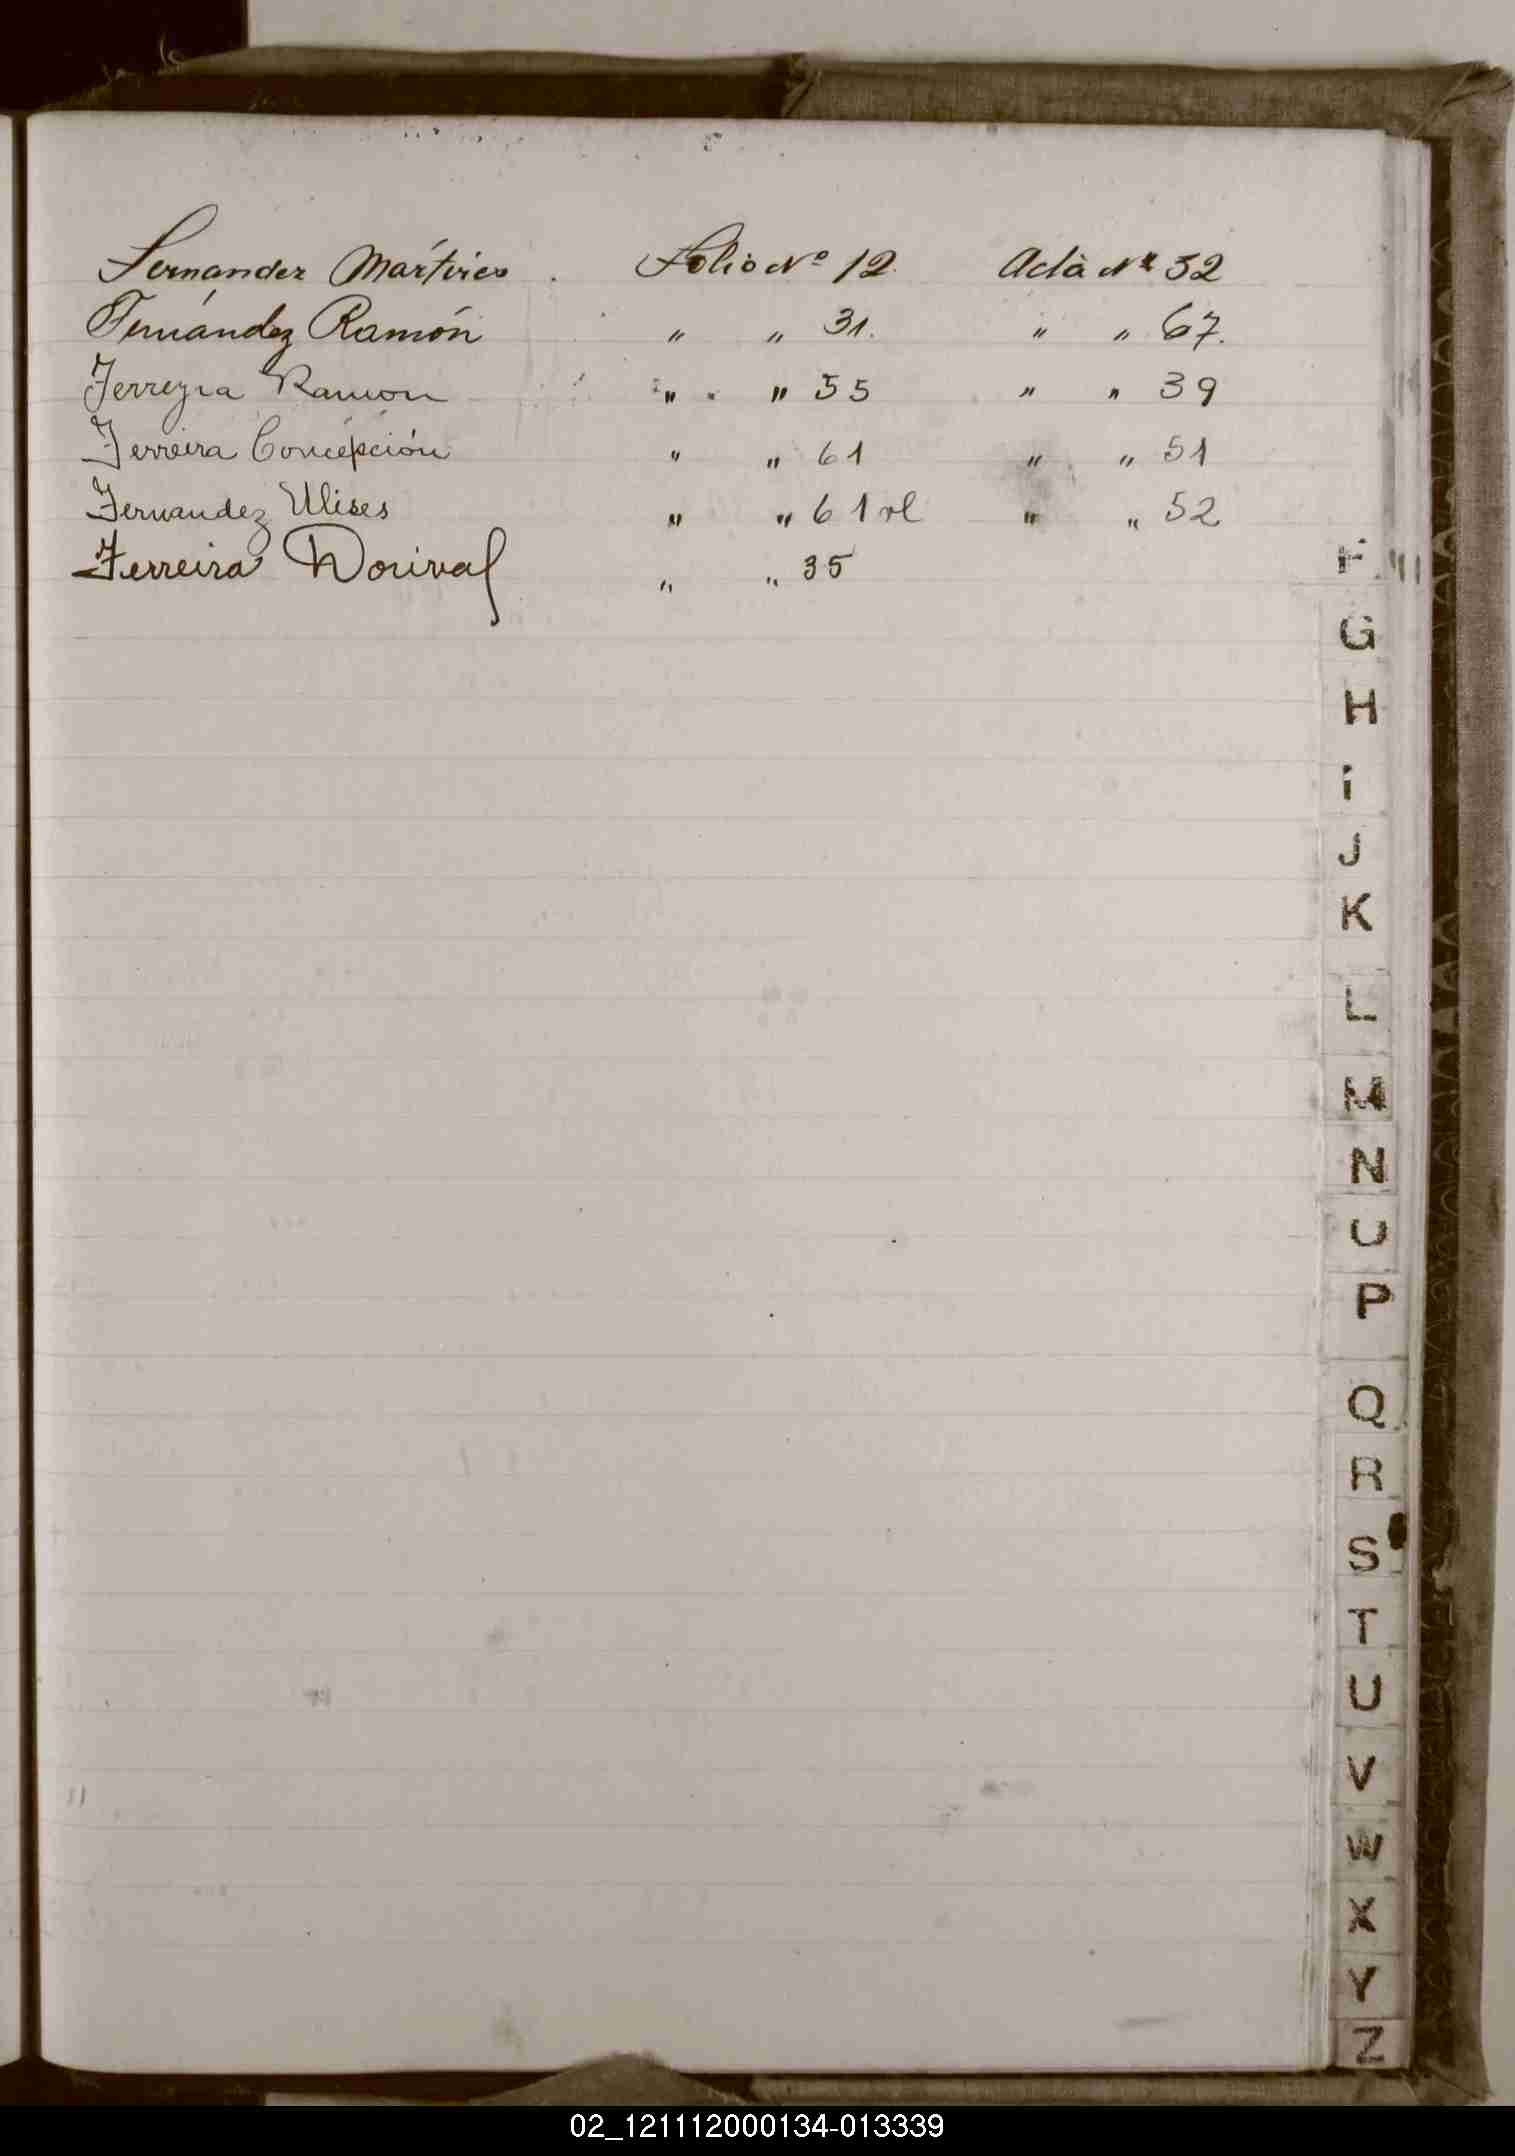 Fernandez Mártires Folio Nº 12 Acta Nº 32
Fernández Ramón " " 31. " " 67.
Ferreyra Ramon " " 55 " " 39
Ferreira Concepción " " 61 " " 51
Fernandez Ulises " " 61 vl " " 52
Ferreira Dorival " " 35
F
G
H
i
J
K
L
M
N
O
P
Q
R
S
T
U
V
W
X
Y
Z
02_121112000134-013339